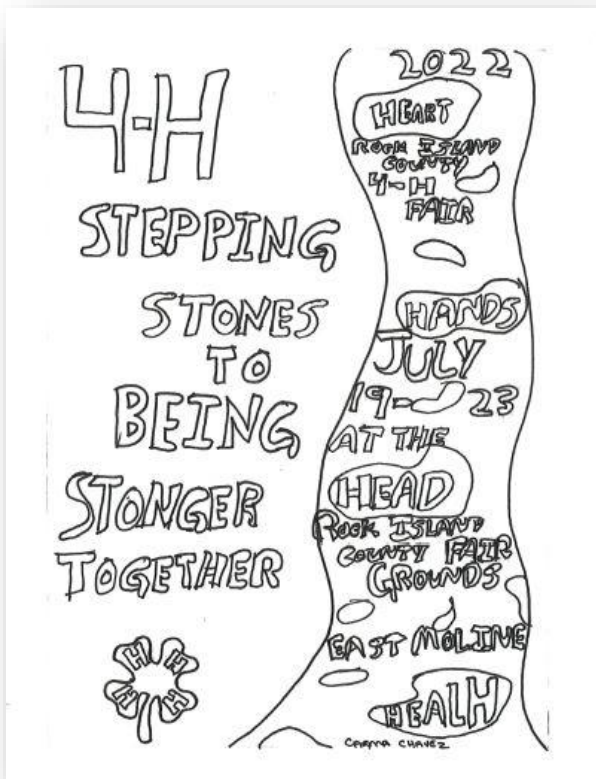 4-H
STEPPING
STONES
TO
BEING
STONGER
TOGETHER
H H
H H
2022
HEART
ROCK ISLAND
COUNTY
4-H
FAIR
HANDS
JULY
19-23
AT THE
HEAD
ROCK ISLAND
COUNTY FAIR
GROUNDS
EAST MOLINE
HEALH
CARMA CHAVEZ